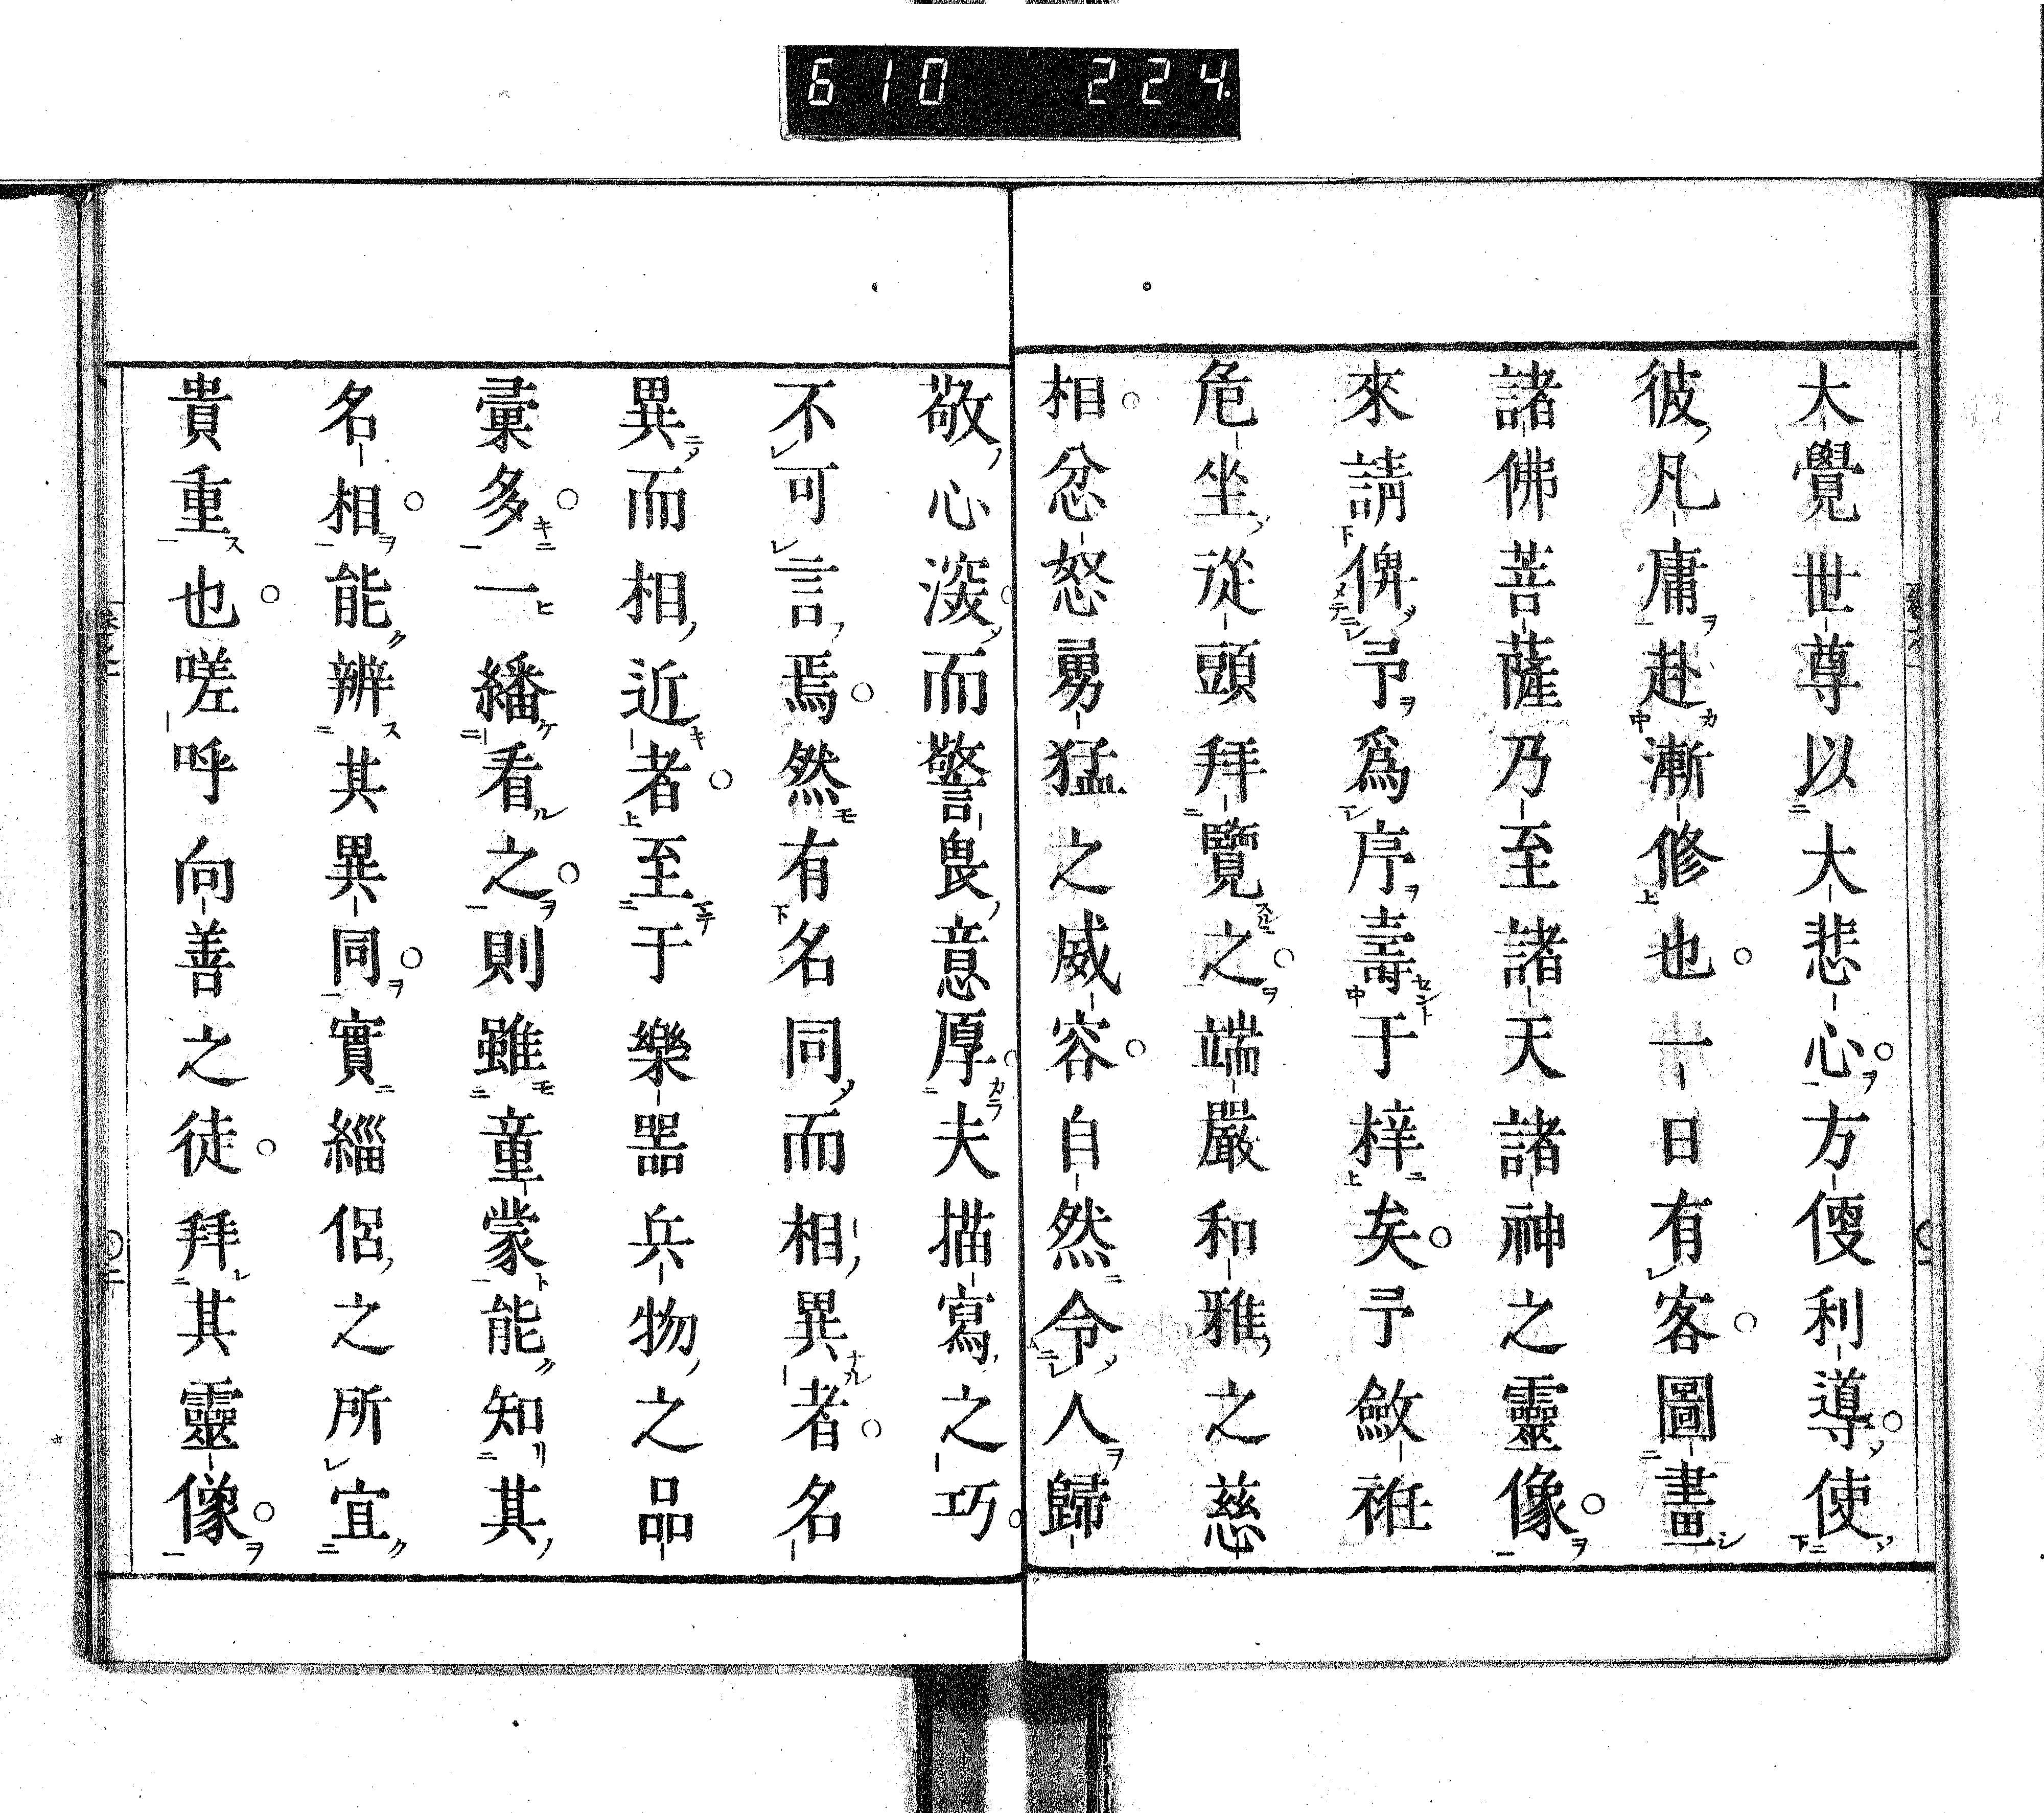 610 224.
大覺世尊以大悲心方便利導使
彼凡庸赴漸修也一日有客圖畫
諸佛菩薩乃至諸天諸神之靈像
來請俾予爲序壽于梓矣予斂衽
危坐從頭拜覽之端嚴和雅之慈
相忿怒勇猛之威容自然令人歸
敬心深而警畏意厚夫描寫之巧
不可言焉然有名同而相異者名
異而相近者至于樂器兵物之品
彙多一繙看之則雖童蒙能知其
名相能辨其異同實緇侶之所宜
貴重也嗟呼向善之徒拜其靈像